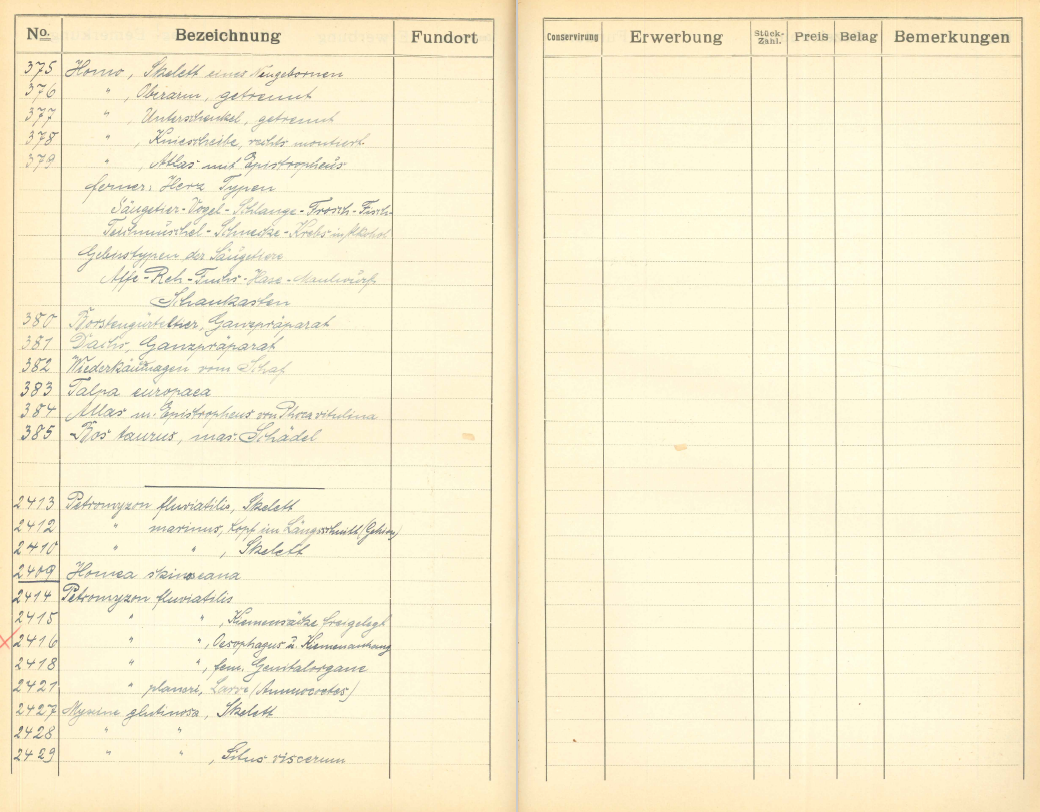 No. Bezeichnung Fundort
375 Homo, Skelett eines Neugebornen
376 " , Oberarm, getrennt
377 " , Unterschenkel, getrennt
378 " , Kniescheibe, rechts montiert
379 " , Atlas mit Epistropheus
ferner: Herz Typen
Säugetier-Vogel-Schlange-Frosch-Fisch-
Teichmuschel-Schnecke-Krebs in Alkohol
der Säugetiere
Affe-Reh-Fuchs-Hase-Maulwurf
Schaukasten
380 Borstengürteltier, Ganzpräparat
381 Dachs, Ganzpräparat
382 Wiederkäumagen vom Schaf
383 Talpa europaea
384 Atlas m. Epistropheus von Phoca vitulina
385 Bos taurus, mas. Schädel
2413 Petromyzon fluviatilis, Skelett
2412 " marinus, Kopf im Längsschnitt (Gehirn)
2410 " " , Skelett
2409 Homea
2414 Petromyzon fluviatilis
2415 " " , Kiemensäcke freigelegt
2416 " " , Oesophagus u. Kiemenanhang
2418 " " , fem. Genitalorgane
2421 " planeri, Larve (Ammocoetes)
2427 Myxine glutinosa, Skelett
2428 " "
2429 " " , Situs viscerum
Conservirung Erwerbung Stück-Zahl. Preis Belag Bemerkungen